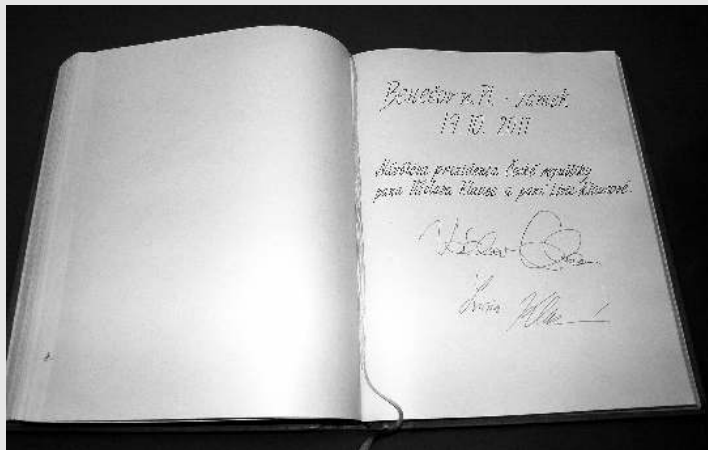 Bečov n. T. - zámek
19. 10. 2011
Návštěva prezidenta České republiky
pana Václava Klause a paní Livie Klausové.
Václav Klaus
Livia Klaus